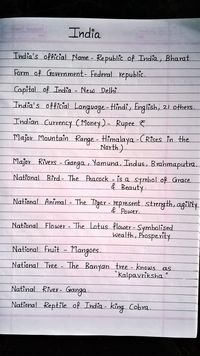 India
India's official Name - Republic of India, Bharat
Form of Government - Federal republic.
Capital of India - New Delhi
India's official Language - Hindi, English, 21 others.
Indian Currency (Money) - Rupee ₹
Major Mountain Range - Himalaya - (Rises in the
North)
Major Rivers - Ganga, Yamuna, Indus, Brahmaputra.
National Bird - The Peacock - is a symbol of Grace
& Beauty.
National Animal - The Tiger - represent strength, agility
& Power.
National Flower - The Lotus flower - Symbolised
wealth, Prosperity
National Fruit - Mangoes.
National Tree - The Banyan tree - knows as
"Kalpavriksha"
Natinal River - Ganga.
National Reptile of India - king Cobra.